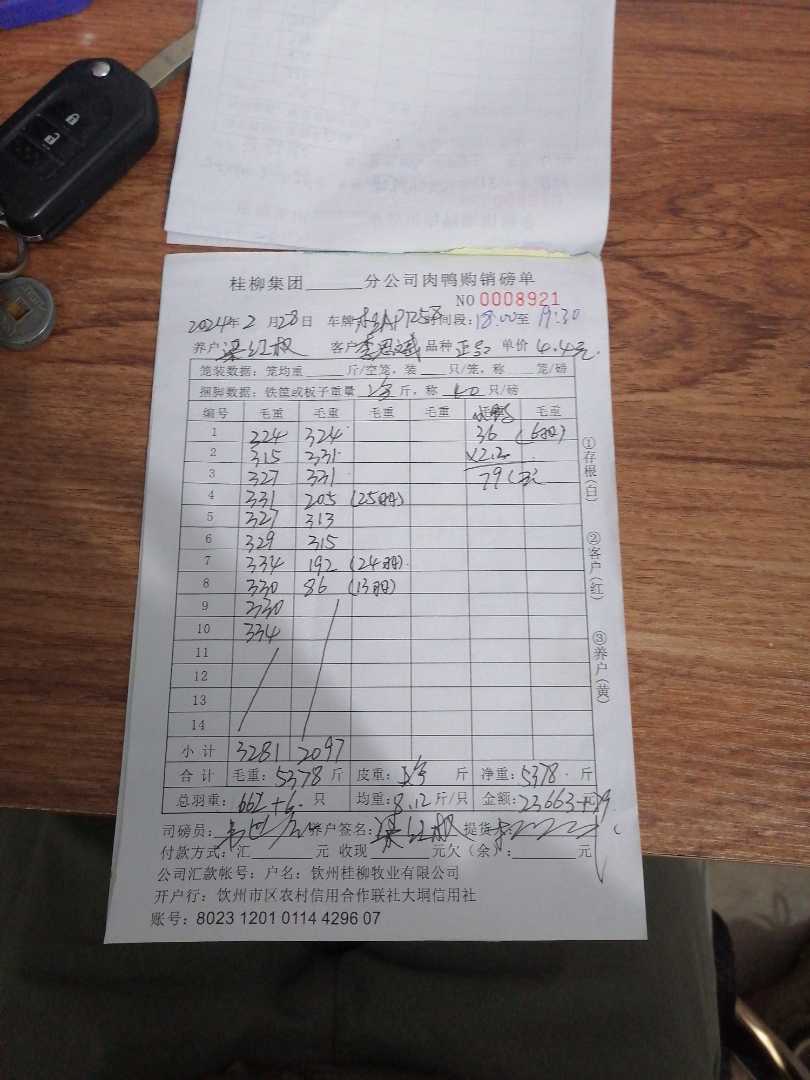 桂柳集团______分公司肉鸭购销磅单
NO 0008921
2024年2月28日 车牌 时间段:18:00至19:30
养户 梁红权 客户 品种 正品 单价 4.4元
笼装数据:笼均重______斤/空笼,装____只/笼,称____笼/磅
捆脚数据:铁筐或板子重量____斤,称 40 只/磅
编号 毛重 毛重 毛重 毛重 毛重 毛重
1 324 324 36 (6羽)
2 315 331 ×2.2
3 327 331 79(元
4 331 205 (25羽)
5 327 313
6 329 315
7 334 192 (24羽)
8 330 86 (13羽)
9 330
10 334
11
12
13
14
小计 3281 2097
合计 毛重:5378斤 皮重: 斤 净重:5378斤
总羽重:662+6只 均重:8.12斤/只 金额:23663元+79
司磅员: 养户签名:梁红权 提货
付款方式:汇______元 收现______元欠(余):______元
公司汇款帐号:户名:钦州桂柳牧业有限公司
开户行:钦州市区农村信用合作联社大垌信用社
账号:8023 1201 0114 4296 07
①存根(白)
②客户(红)
③养户(黄)